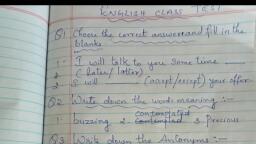 ENGLISH CLASS TEST
Q1. Choose the correct answer and fill in the
blanks
1- I will talk to you some time
( later / latter )
2 I will (accept/except) your offer
Q2 Write down the word meaning :-
1 buzzing 2 contemplated 3 Precious
Q3 Write down the Antonyms :-